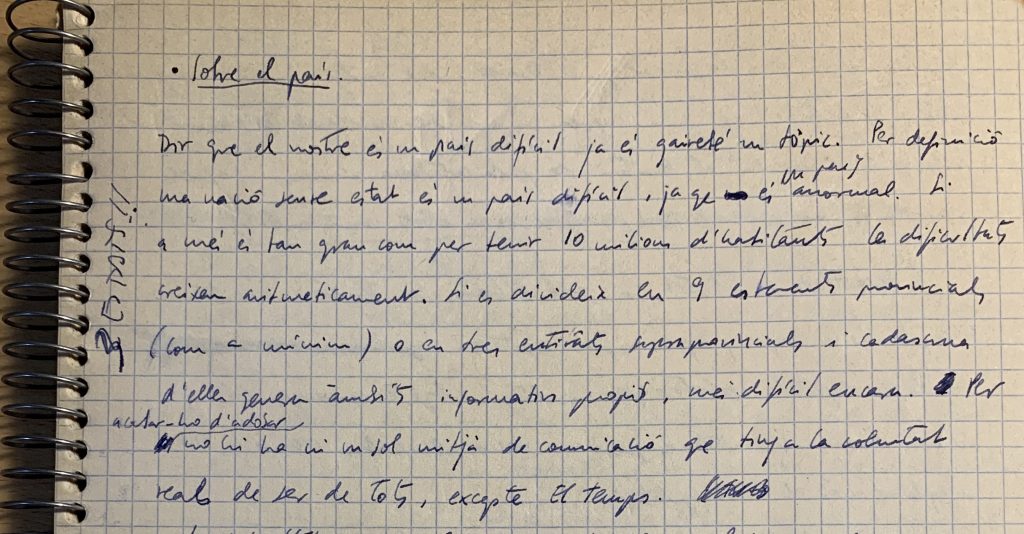 • Sobre el país.
Dir que el nostre és un país difícil ja és gairebé un tòpic. Per definició
una nació sense estat és un país difícil, ja que és un país anormal. Si
a més és tan gran com per tenir 10 milions d'habitants les dificultats
creixen aritmèticament. Si es divideix en 9 estaments provincials
(com a mínim) o en tres entitats supraprovincials i cadascuna
d'elles genera àmbits informatius propis, més difícil encara. Per
acabar-ho d'adobar
no hi ha ni un sol mitjà de comunicació que tingui la voluntat
real de ser de tots, excepte El Temps.